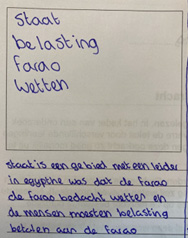 staat
belasting
farao
wetten
staat is een gebied met een leider
in egypthe was dat de farao
de farao bedacht wetten en
de mensen moesten belasting
betalen aan de farao